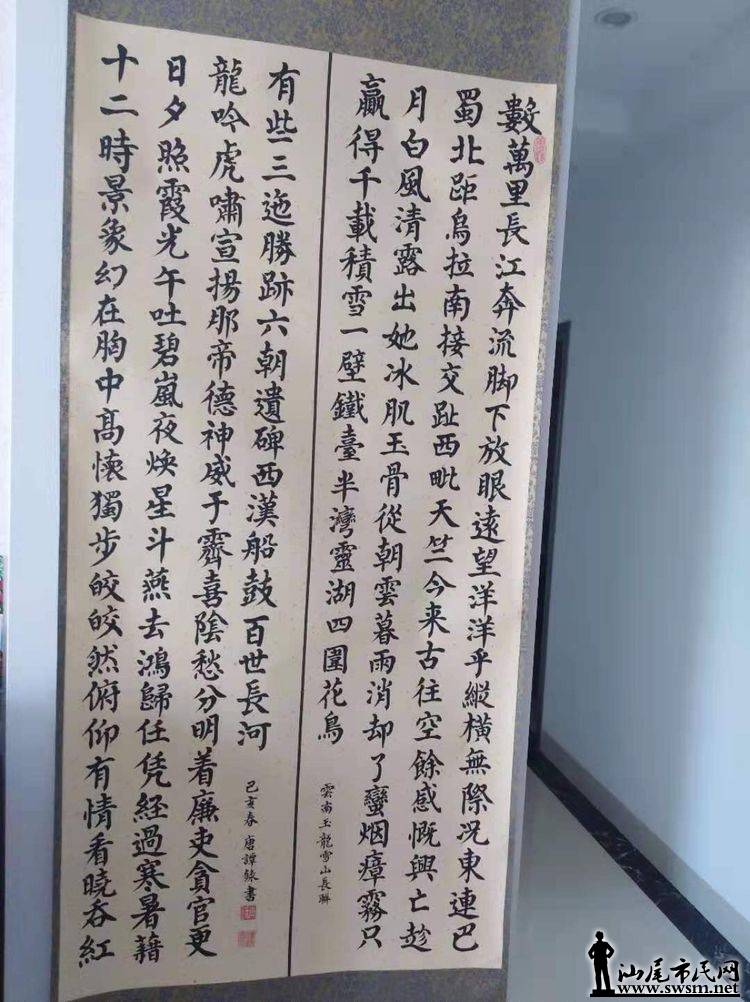 數萬里長江奔流脚下放眼遠望洋洋乎縱橫無際况東連巴
蜀北距烏拉南接交趾西毗天竺今来古往空餘感慨興亡趁
月白風清露出她冰肌玉骨從朝雲暮雨消却了蠻烟瘴霧只
贏得千載積雪一壁鐵臺半灣靈湖四圍花鳥
雲南玉龍雪山長聯
十二時景象幻在胸中高懷獨步皎皎然俯仰有情看曉吞紅
日夕照霞光午吐碧嵐夜煥星斗燕去鴻歸任凭經過寒暑藉
龍吟虎嘯宣揚那帝德神威于霽喜陰愁分明着廉吏貪官更
有些三迤勝跡六朝遺碑西漢船鼓百世長河
己亥春 唐譚書
汕尾市民网
www.swsm.net